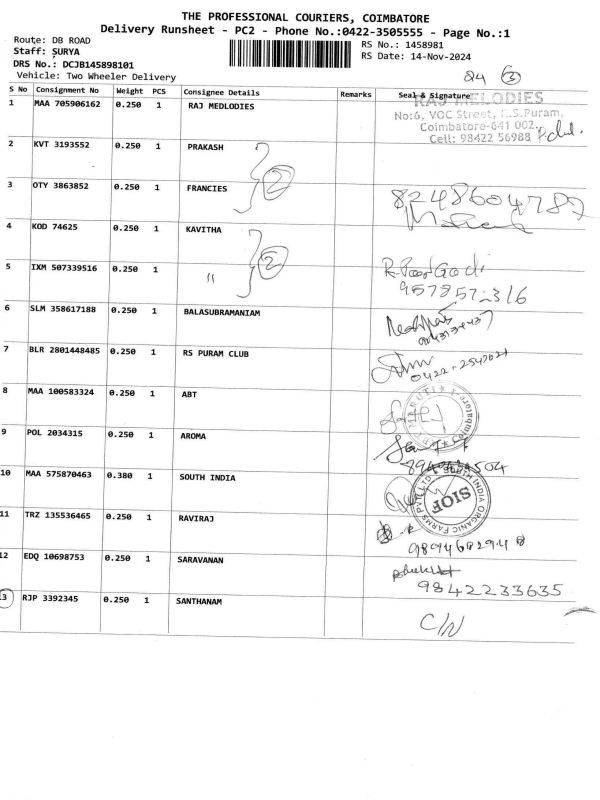 THE PROFESSIONAL COURIERS, COIMBATORE
Delivery Runsheet - PC2 - Phone No.:0422-3505555 - Page No.:1
Route: DB ROAD
Staff: SURYA
DRS No.: DCJB145898101
Vehicle: Two Wheeler Delivery
RS No.: 1458981
RS Date: 14-Nov-2024
24 3
S No Consignment No Weight PCS Consignee Details Remarks Seal & Signature
1 MAA 705906162 0.250 1 RAJ MEDLODIES
RAJ MELODIES
No:6, VOC Street, R.S.Puram,
Coimbatore-641 002.
Cell: 98422 56988
2 KVT 3193552 0.250 1 PRAKASH
2
3 OTY 3863852 0.250 1 FRANCIES
4 KOD 74625 0.250 1 KAVITHA
2
5 IXM 507339516 0.250 1 "
6 SLM 358617188 0.250 1 BALASUBRAMANIAM
7 BLR 2801448485 0.250 1 RS PURAM CLUB
8 MAA 100583324 0.250 1 ABT
9 POL 2034315 0.250 1 AROMA
10 MAA 575870463 0.380 1 SOUTH INDIA
SOUTH INDIA ORGANIC FARMS PVT LTD
SIOF
11 TRZ 135536465 0.250 1 RAVIRAJ
12 EDQ 10698753 0.250 1 SARAVANAN
9842233635
13 RJP 3392345 0.250 1 SANTHANAM
C/N